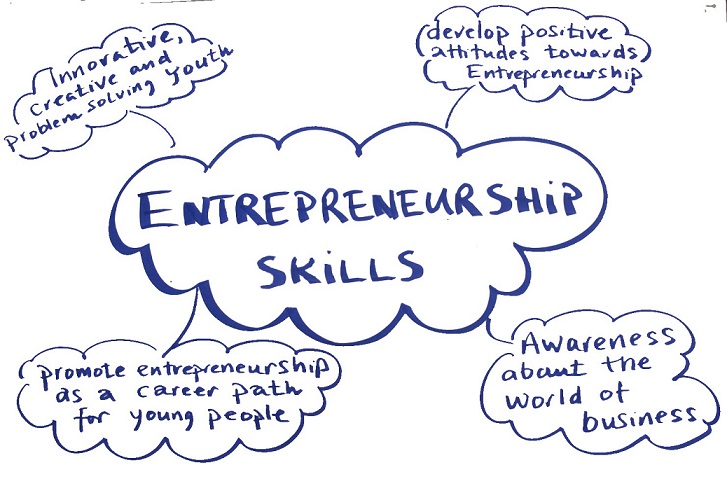 Innovative,
creative and
problem solving youth
develop positive
attitudes towards
Entrepreneurship
ENTREPRENEURSHiP
SKiLLS
promote entrepreneurship
as a career path
for young people
Awareness
about the
world of
business